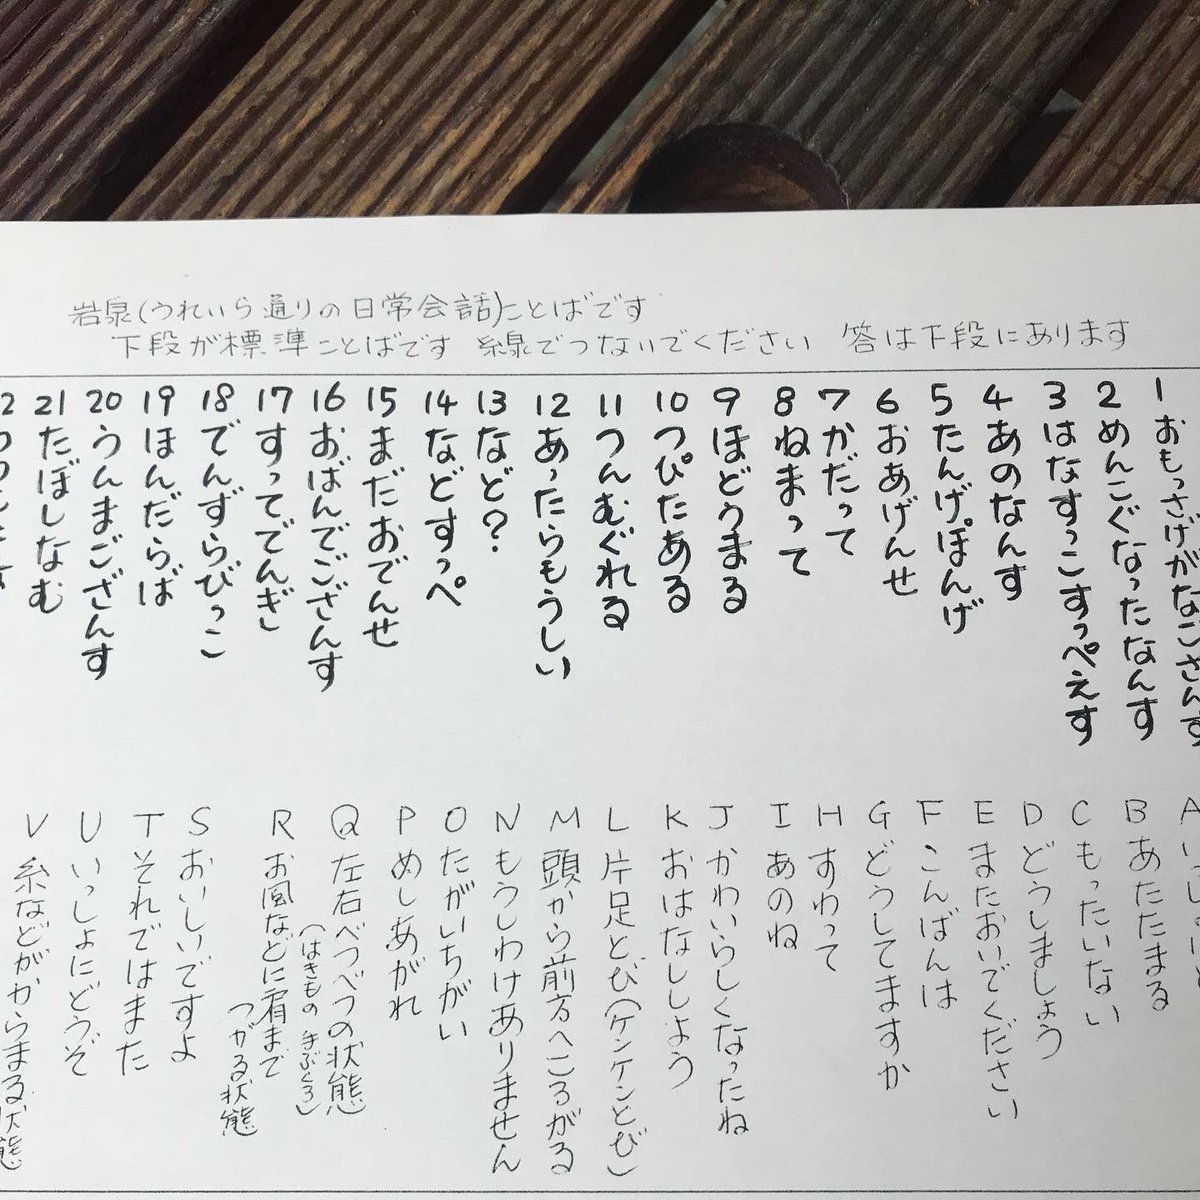 岩泉(うれいら通りの日常会話)ことばです
下段が標準ことばです 線でつないでください 答は下段にあります
1 おもっさげがなござんす
2 めんこぐなったなんす
3 はなすっこすっぺえす
4 あのなんす
5 たんげぽんげ
6 おあげんせ
7 かだって
8 ねまって
9 ほどうまる
10 つぴたある
11 つんむぐれる
12 あったらもうしい
13 など?
14 などすっぺ
15 まだおでんせ
16 おばんでござんす
17 すってでんぎ
18 でんずらびっこ
19 ほんだらば
20 うんまござんす
21 たぼしなむ
B あたたまる
C もったいない
D どうしましょう
E またおいでください
F こんばんは
G どうしてますか
H すわって
I あのね
J かわいらしくなったね
K おはなししよう
L 片足とび(ケンケンとび)
M 頭から前方へころがる
N もうしわけありません
O たがいちがい
P めしあがれ
Q 左右べつべつの状態
(はきもの 手ぶくろ)
R お風呂などに肩まで
つかる状態
S おいしいですよ
T それではまた
U いっしょにどうぞ
V 糸などがからまる状態